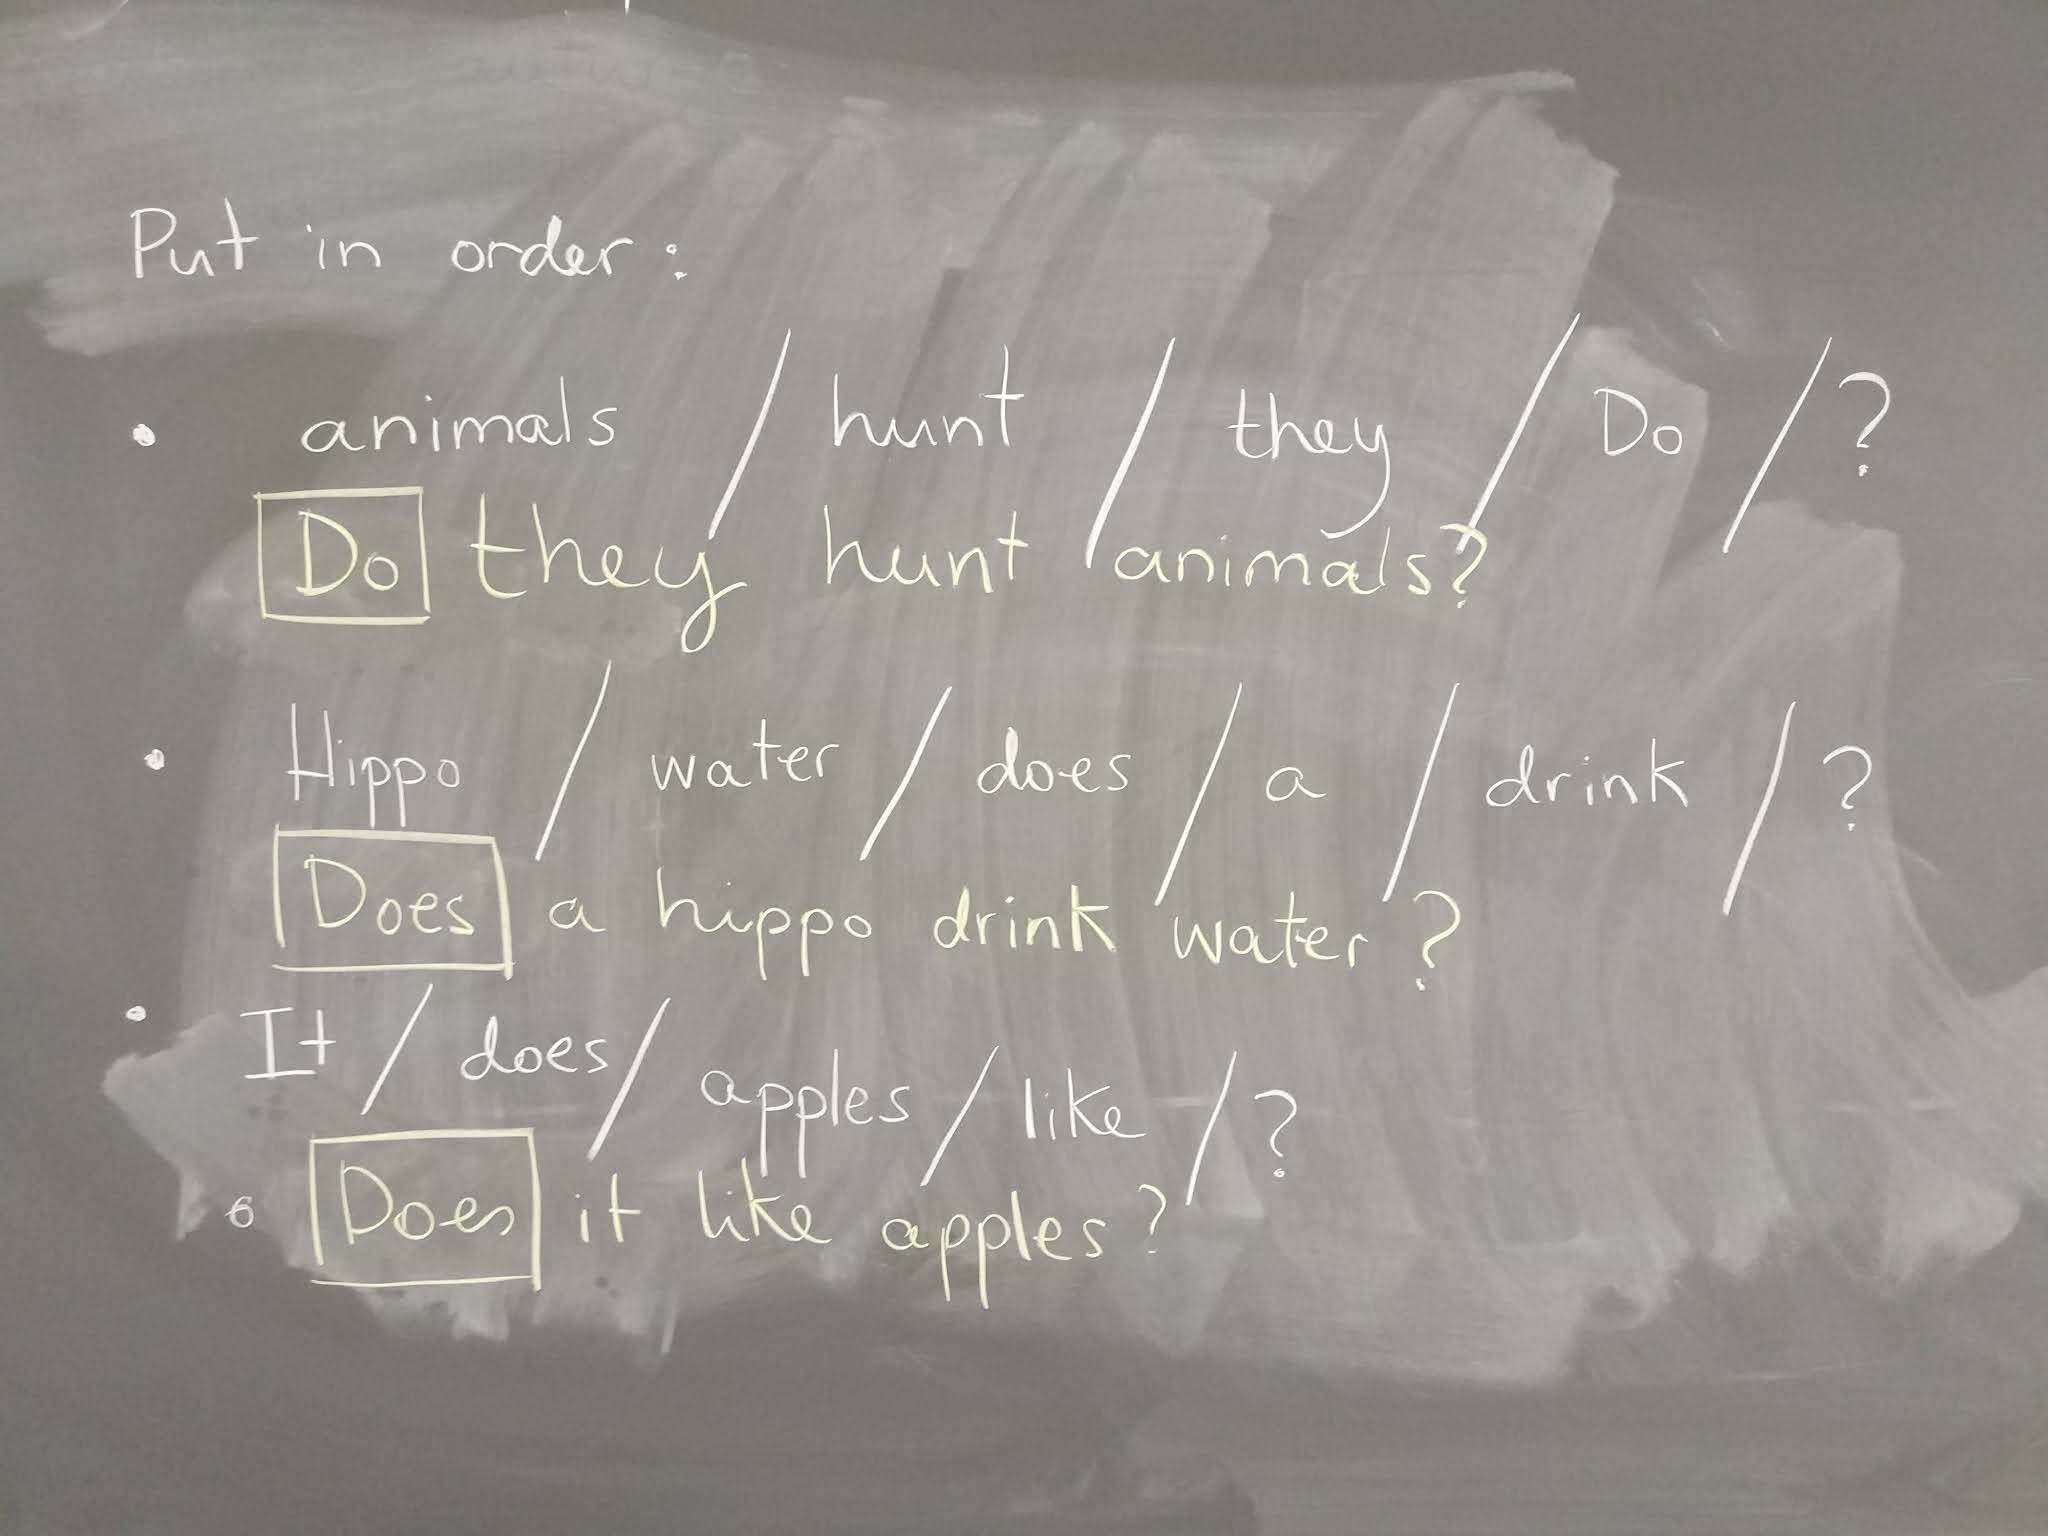 Put in order:
• animals / hunt / they / Do / ?
Do they hunt animals?
• Hippo / water / does / a / drink / ?
Does a hippo drink water?
• It / does / apples / like / ?
Does it like apples?